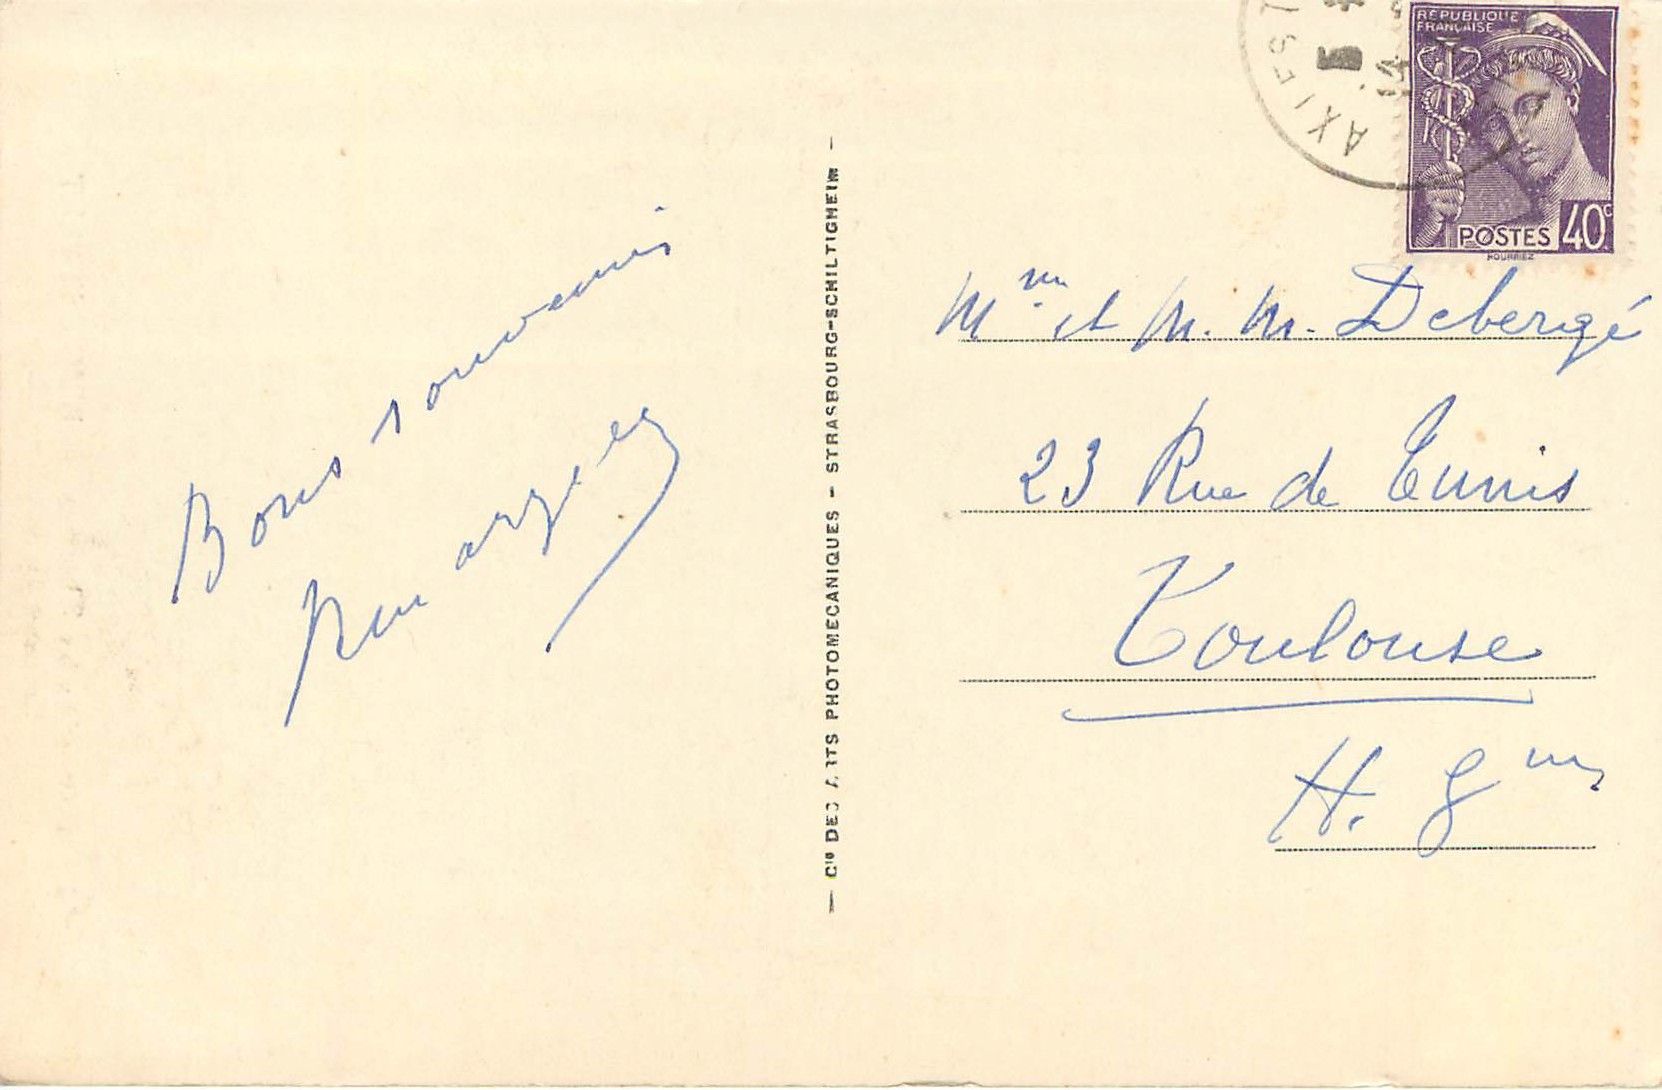 Bons souvenirs
RÉPUBLIQUE
FRANÇAISE
POSTES 40c
HOURRIEZ
AX LES T
Mme et M. M. Debergé
23 Rue de Tunis
Toulouse
H. Gne
— Cie DES ARTS PHOTOMECANIQUES - STRASBOURG-SCHILTIGHEIM —